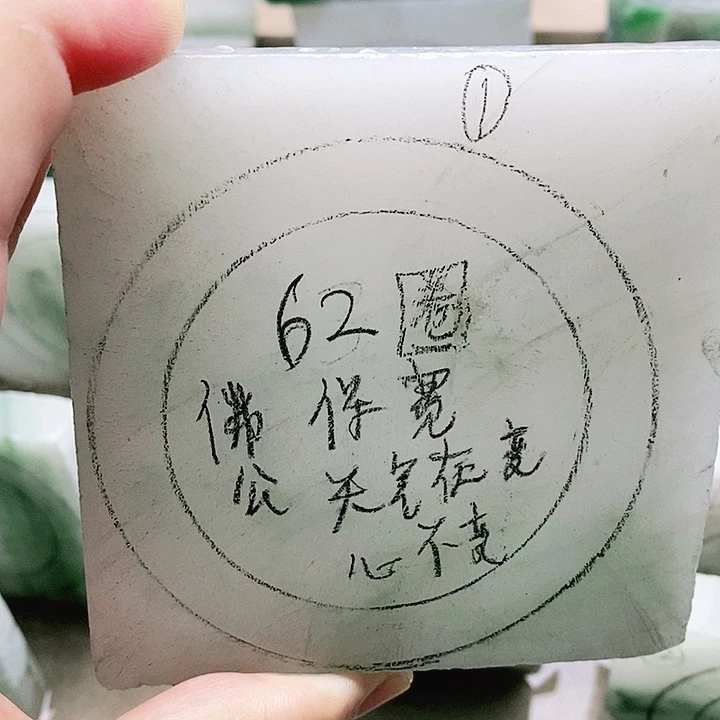 ①
62圈
佛 保宽
公 天气在变
心不变